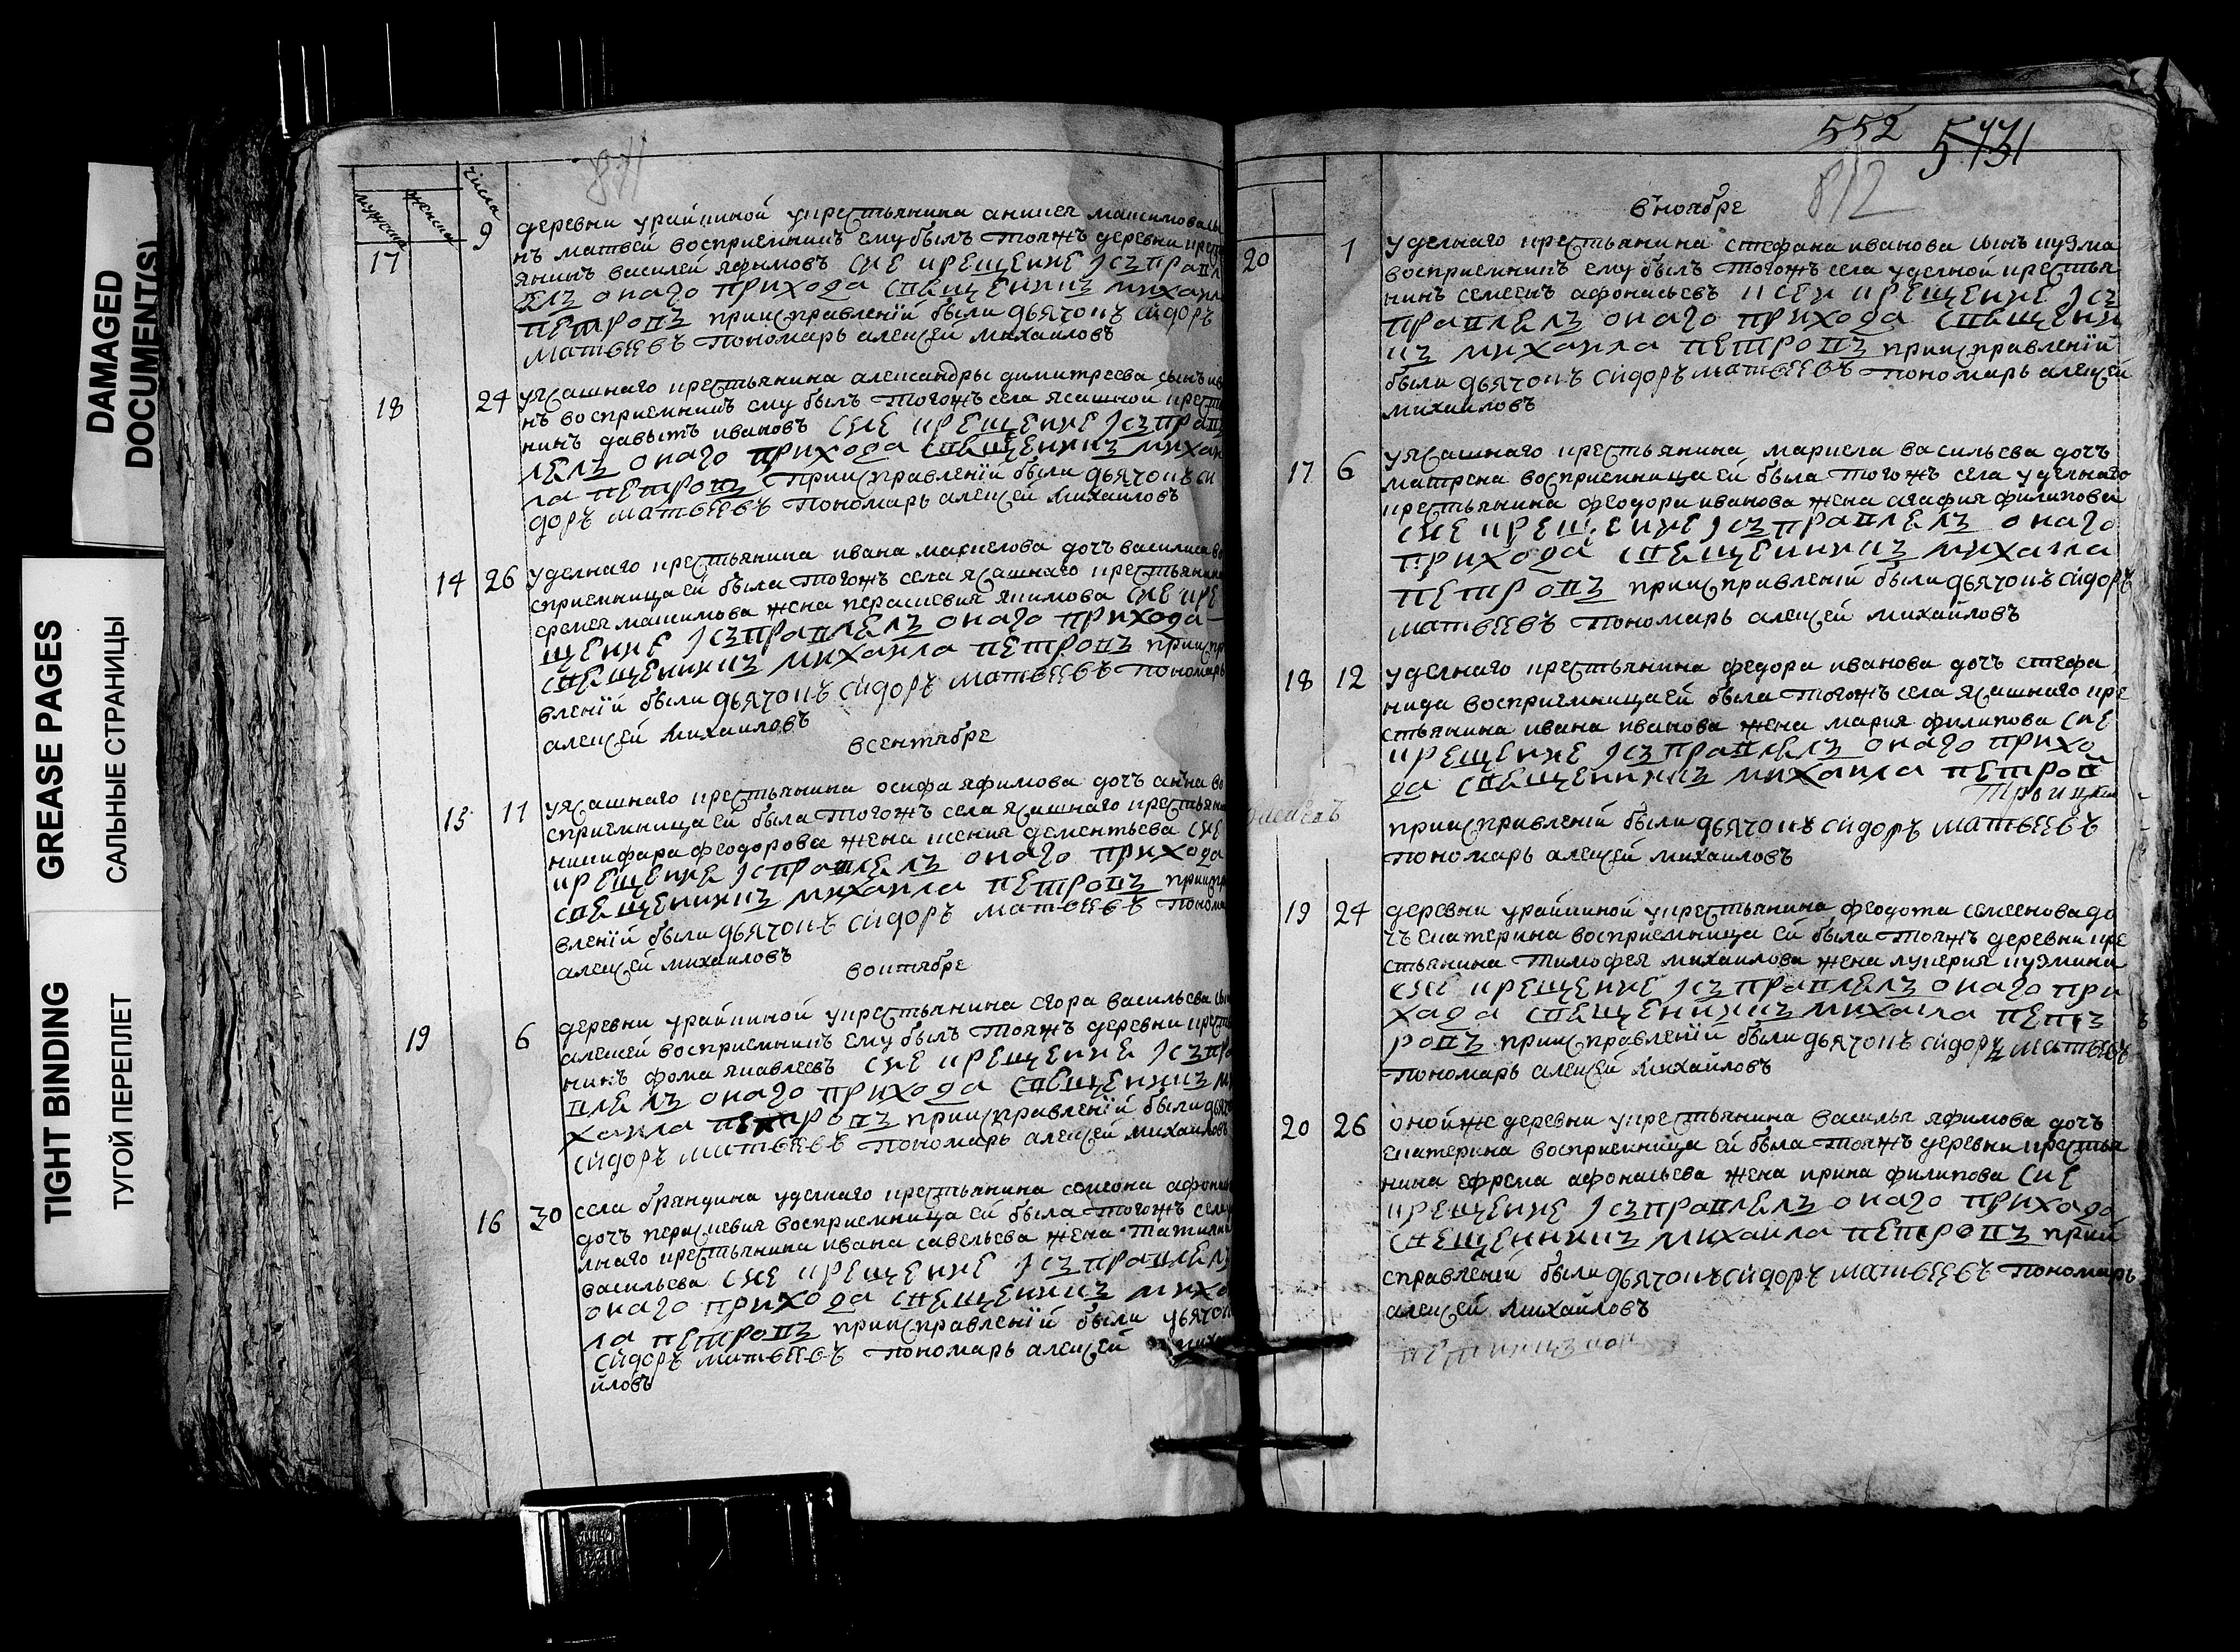 DAMAGED
DOCUMENT(S)
GREASE PAGES
САЛЬНЫЕ СТРАНИЦЫ
TIGHT BINDING
ТУГОЙ ПЕРЕПЛЕТ
числа
9
17
деревни урайкиной укрестьянина аникея максимова сы
нъ матвей восприемникъ ему былъ тояжъ деревни крест
янинъ василей яфимовъ сие крещение исправ
лялъ онаго прихода священникъ михаила
петровъ приисправлении были дьячокъ сидоръ
матвеевъ пономарь алексей михаиловъ
18
24
уясашнаго крестьянина александры димитреева сынъ ив
нъ восприемникъ ему былъ тогожъ села ясашной крест
нинъ давытъ ивановъ сие крещение исправ
лялъ онаго прихода священникъ михаи
ла петровъ приисправлении были дьячокъ си
доръ матвеевъ пономарь алексей михаиловъ
14 26
уделнаго крестьянина ивана маркелова дочъ василиса во
сприемница ей была тогожъ села ясашнаго крестьянина
еремея максимова жена перасковия якимова сие кре
щение исправлялъ онаго прихода
священникъ михаила петровъ приисправ
влении были дьячокъ сидоръ матвеевъ пономарь
алексей михаиловъ
всентябре
15 11
уясашнаго крестьянина осифа яфимова дочъ анна во
сприемница ей была тогожъ села ясашнаго крестьяни
никифара феодорова жена ксения дементьева сие
крещение исправлялъ онаго прихода
священникъ михаила петровъ приисп
влении были дьячокъ сидоръ матвеевъ понома
алексей михаиловъ
воктябре
19
6
деревни урайкиной укрестьянина егора васильева сы
алексей восприемникъ ему былъ тояжъ деревни крест
нинъ фома яковлевъ сие крещение исправ
влялъ онаго прихода священникъ ми
хаила петровъ приисправлении были дьячо
сидоръ матвеевъ пономарь алексей михаиловъ
16 30
села бряндина уделнаго крестьянина семиона афонас
дочъ перасковия восприемница ей была тогожъ села уде
лнаго крестьянина ивана савельева жена татиана
васильева сие крещение исправлялъ
онаго прихода священникъ миха
ла петровъ приисправлении были дьячок
сидоръ матвеевъ пономарь алексей миха
йловъ
552
812
вноябре
20
1
уделнаго крестьянина стефана иванова сынъ кузма
восприемникъ ему былъ тогожъ села уделной крестья
нинъ семеенъ афонасьевъ и сеи крещение ис
правлялъ онаго прихода священни
къ михаила петровъ приисправлении
были дьячокъ сидоръ матвеевъ пономарь алексей
михаиловъ
17 6
уясашнаго крестьянина маркела васильева дочъ
матрена восприемница ей была тогожъ села уделнаго
крестьянина феодора иванова жена агафия филипова
сие крещение исправлялъ онаго
прихода священникъ михаила
петровъ приисправлении были дьячокъ сидоръ
матвеевъ пономарь алексей михайловъ
18 12
уделнаго крестьянина федора иванова дочъ стефа
нида восприемница ей была тогожъ села ясашнаго кре
стьянина ивана иванова жена мария филипова сие
крещение исправлялъ онаго прихо
да священникъ михаила петров
приисправлении были дьячокъ сидоръ матвеевъ
пономарь алексей михаиловъ
19 24
деревни урайкиной укрестьянина феодота семеенова до
чъ екатерина восприемница ей была тояжъ деревни кре
стьянина тимофея михаилова жена лукерия кузмина
сие крещение исправлялъ онаго при
хода священникъ михаила пет
ровъ приисправлении были дьячокъ сидоръ матвеевъ
пономарь алексей михайловъ
20 26
онойже деревни укрестьянина василья яфимова дочъ
екатерина восприемница ей была тояжъ деревни крестья
нина ефрема афонасьева жена ирина филипова сие
крещение исправлялъ онаго прихода
священникъ михаила петровъ прии
справлении были дьячокъ сидоръ матвеевъ пономарь
алексей михайловъ